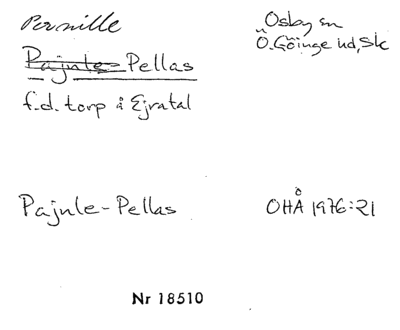 Pernille
Pajnle-Pellas
f.d. torp å Ejratal
Osby sn
Ö. Göinge hd, Sk
Pajnle-Pellas
OHÅ 1976:21
Nr 18510